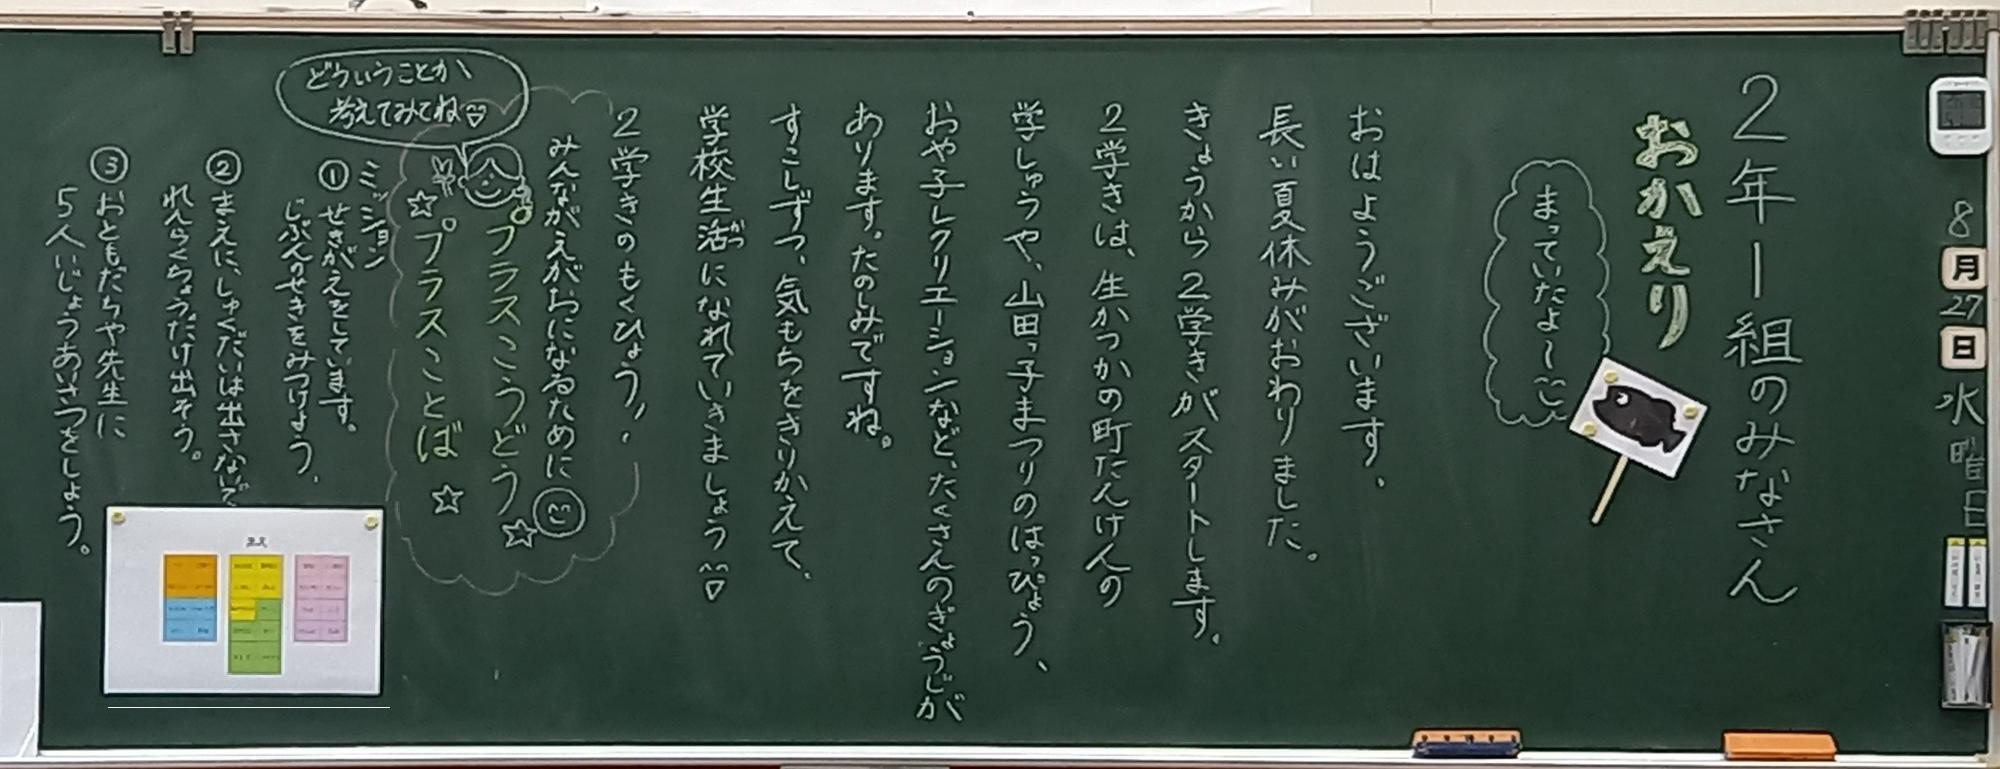 8
月
27
日
水
曜
日
2年1組のみなさん
おかえり
まっていたよー
おはようございます。
長い夏休みがおわりました。
きょうから2学きがスタートします。
2学きは、生かつかの町たんけんの
学しゅうや、山田っ子まつりのはっぴょう、
おや子レクリエーションなど、たくさんのぎょうじが
あります。たのしみですね。
すこしずつ、気もちをきりかえて、
学校生活になれていきましょう
かつ
2学きのもくひょう!
みんながえがおになるために
☆プラスこうどう☆
☆プラスことば☆
どういうことか
考えてみてね
ミッション
① せきがえをしています。
じぶんのせきをみつけよう。
② まえに、しゅくだいは出さないで
れんらくちょうだけ出そう。
③ おともだちや先生に
5人いじょうあいさつをしよう。